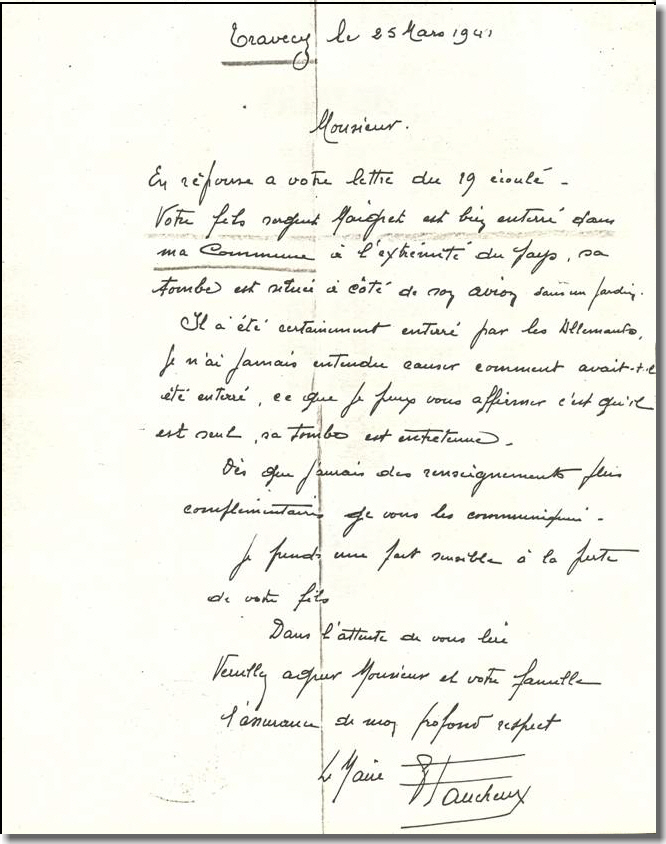 Travecy le 25 Mars 1941
Monsieur.
En réponse a votre lettre du 19 écoulé -
Votre fils sergent Maigret est bien enterré dans
ma Commune à l'extrémité du pays, sa
tombe est située à côté de son avion dans un jardin.
Il a été certainement enterré par les Allemands,
Je n'ai jamais entendu causer comment avait-t-il
été enterré, ce que je peux vous affirmer c'est qu'il
est seul, sa tombe est entretenue.
Dès que j'amais des renseignements plus
complémentaires je vous les communiquerai.
Je prends une part sensible à la perte
de votre fils
Dans l'attente de vous lire
Veuillez agréer Monsieur et votre famille
l'assurance de mon profond respect
Le Maire